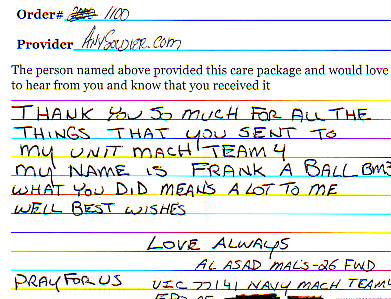 Order# 1100
Provider AnySoldier.com
The person named above provided this care package and would love
to hear from you and know that you received it
THANK YOU SO MUCH FOR ALL THE
THINGS THAT YOU SENT TO
MY UNIT MACH TEAM 4
MY NAME IS FRANK A BALL BM3
WHAT YOU DID MEANS A LOT TO ME
WELL BEST WISHES
LOVE ALWAYS
AL ASAD MALS-26 FWD
PRAY FOR US UIC 77141 NAVY MACH TEAM